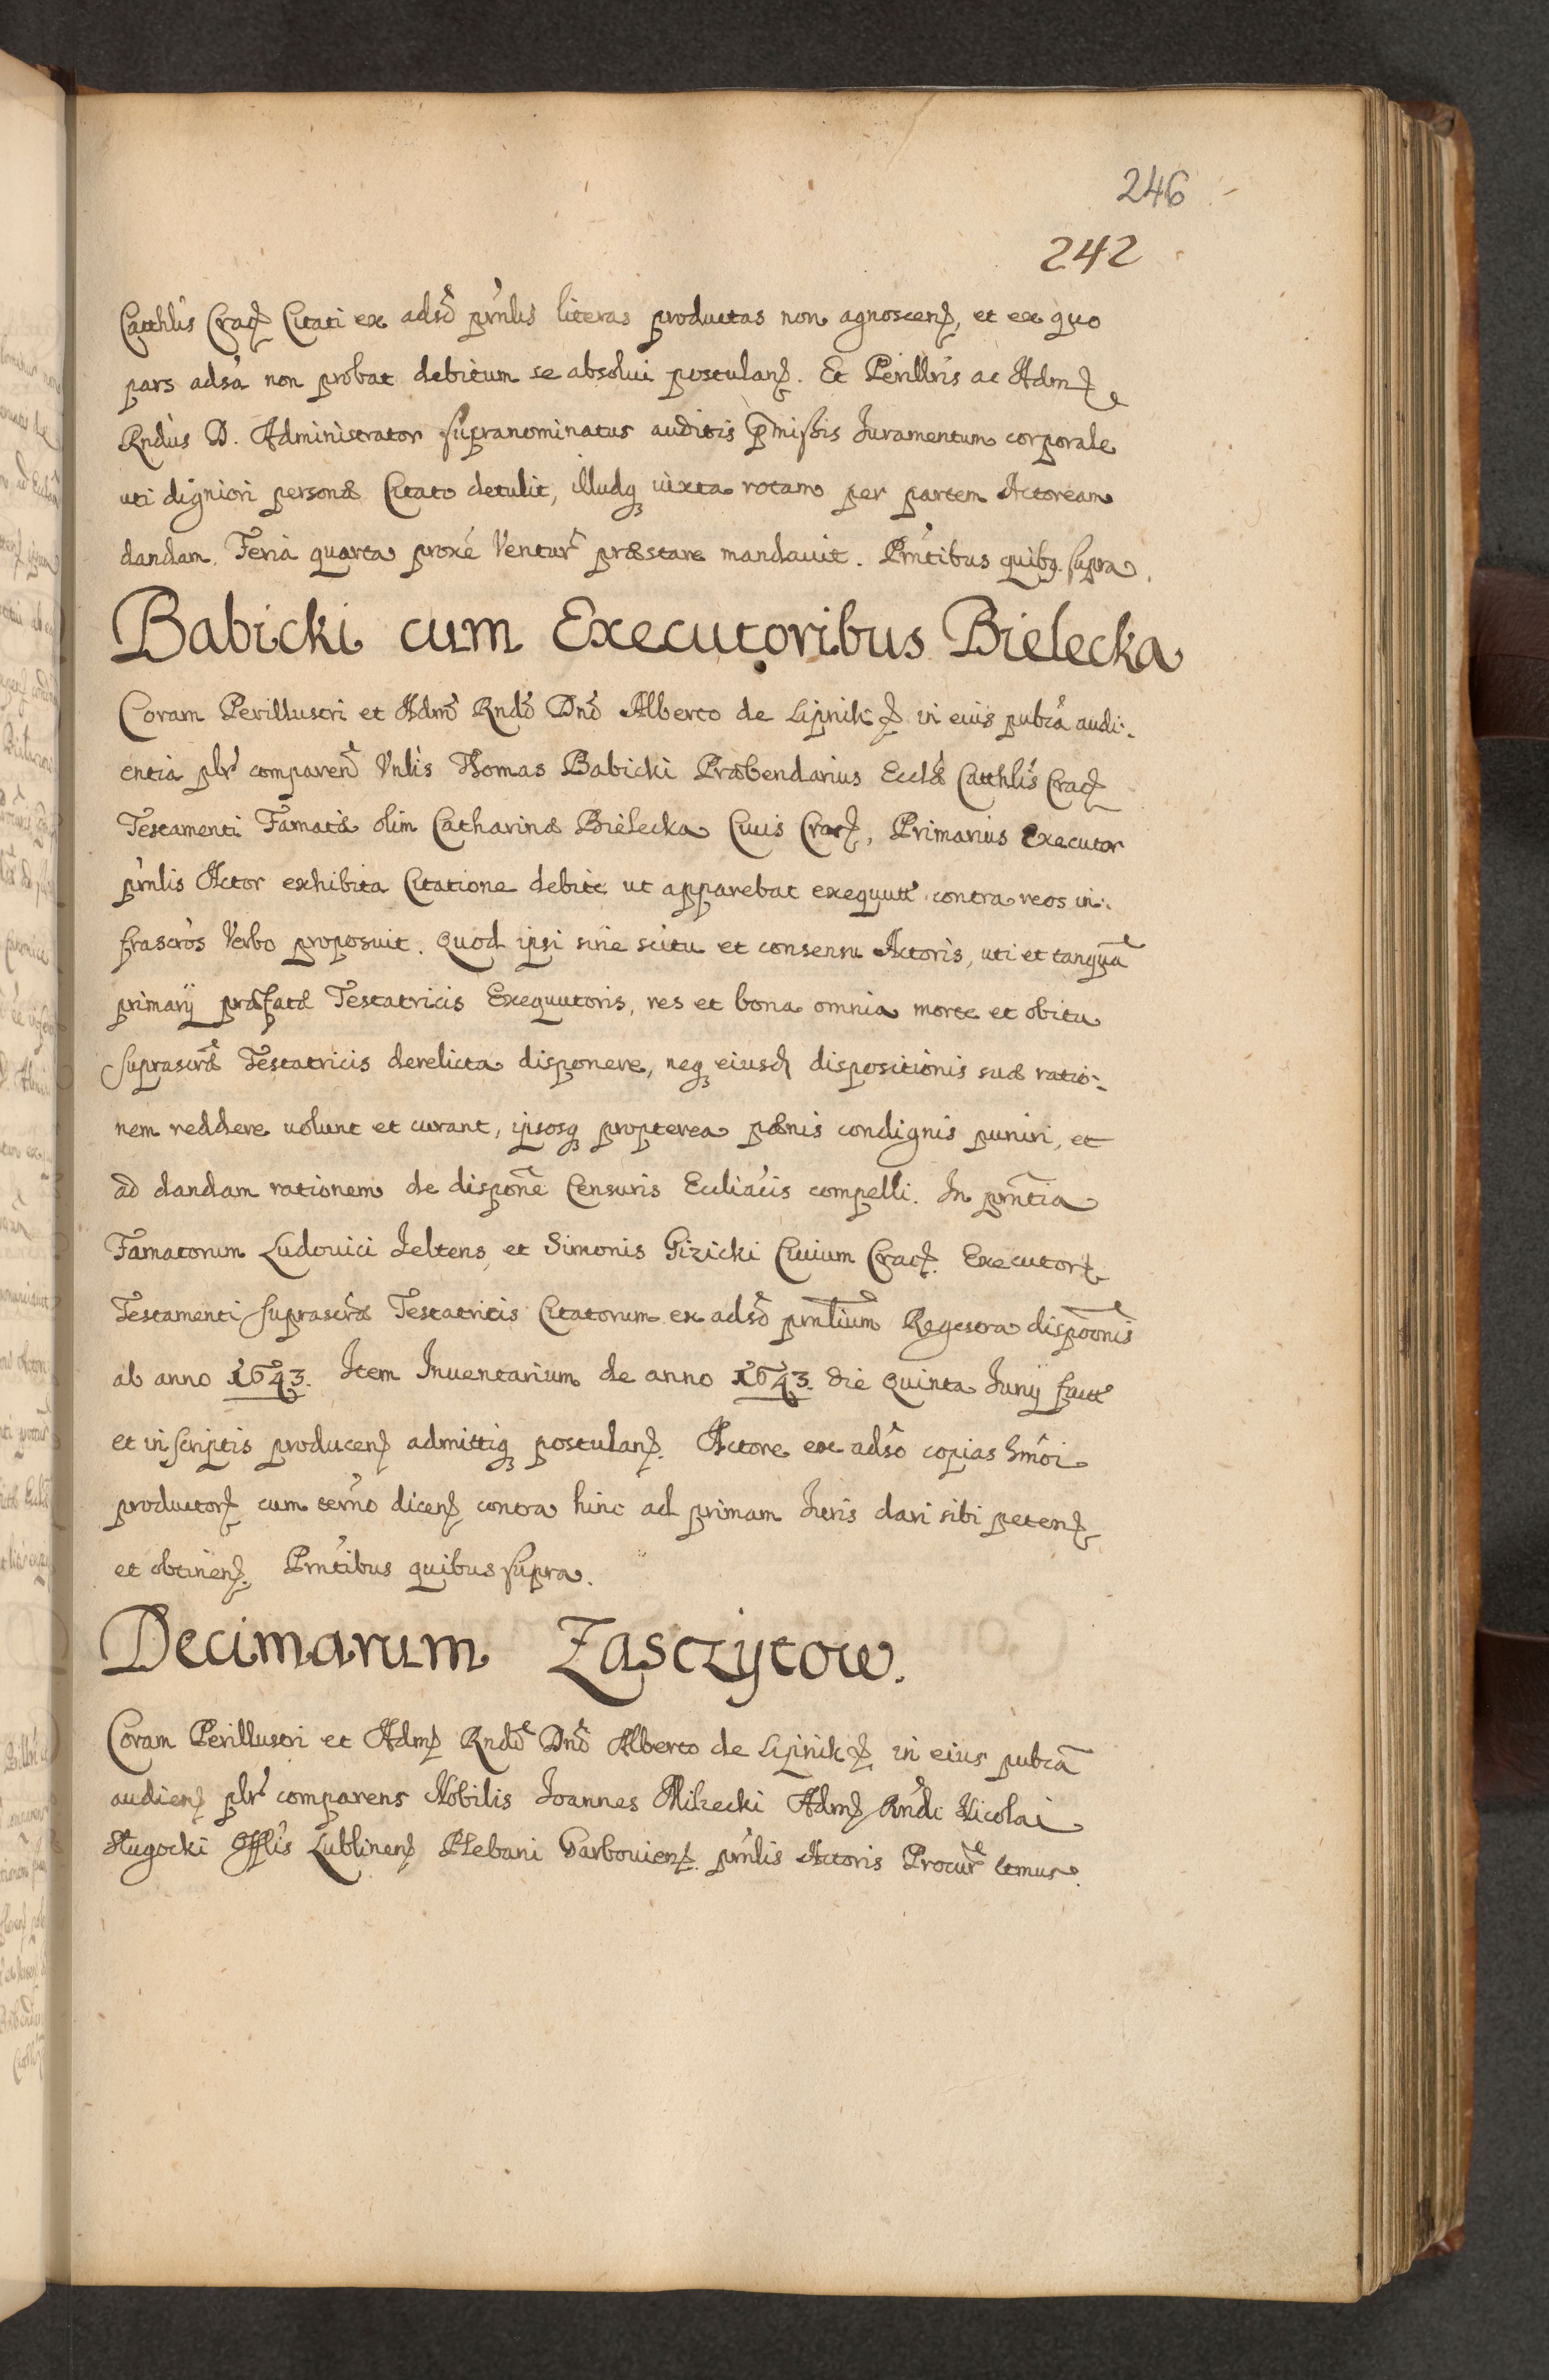 246
242
Catthlis Crac̃ Citati ex adsõ pñnlis literas productas non agnoscen̄, et ex quo
pars adsa non probat debitum se absolui postulan̄. Et Perillris ac Adm̄
Rndus D. Administrator supranominatus auditis p̄missis Iuramentum corporale
uti digniori personæ Citato detulit, illudq̨ iuxta rotam per partem Actoream
dandam. Feria quarta proxé Ventur̃ præstare mandauit. Prñtibus quibq̨ supra.
Babicki cum Executoribus Bielecka
Coram Perillustri et Adm̃ Rndõ Dnõ Alberto de Lipnik in eius pubca audi:
entia plr̃ comparen̄ Vnlis Thomas Babicki Præbendarius Eccłæ Catthlis Crac̃
Testamenti Famatæ olim Catharinæ Bielecka Ciuis Crac̃, Primarius Executor
pñnlis Actor exhibita Citatione debite ut apparebat exequutt̃ contra reos in:
frascros Verbo proposuit. Quod ipsi sine scitu et consensu Actoris, uti et tanquã
primarij præfatæ Testatricis Exequutoris, res et bona omnia morte et obitu
suprascræ̃ Testatricis derelicta disponere, neq̨ eiusd̄ dispositionis suæ ratio:
nem reddere uolunt et curant, ipsosq̨ propterea pœnis condignis puniri, et
ad dandam rationem de disponẽ Censuris Eccliacis compelli. In prñtia
Famatorum Ludouici Ieltens, et Simonis Gizicki Ciuium Crac̃. Executor̄
Testamenti suprascræ Testatricis Citatorum ex adsõ prñlium Regestra dispoõnis
ab anno 1643. Item Inuentarium de anno 1643. die Quinta Iunij fact̃
et in scriptis producen̄ admittiq̨ postulan̄. Actore ex adsõ copias hm̃oi
productor̄ cum termõ dicen̄ contra hinc ad primam Iuris dari sibi peten̄
et obtinen̄. Prñtibus quibus supra.
Decimarum Zasczytow.
Coram Perillustri et Adm̄ Rndõ Dnõ Alberto de Lipnik in eius pubcã
audien̄ plr̃ comparens Nobilis Ioannes Milecki Adm̄ Rndi Nicolai
Sługocki Offlis Lublinen̄ Plebani Garbouien̄. pñnlis Actoris Procur̃ ltmus.